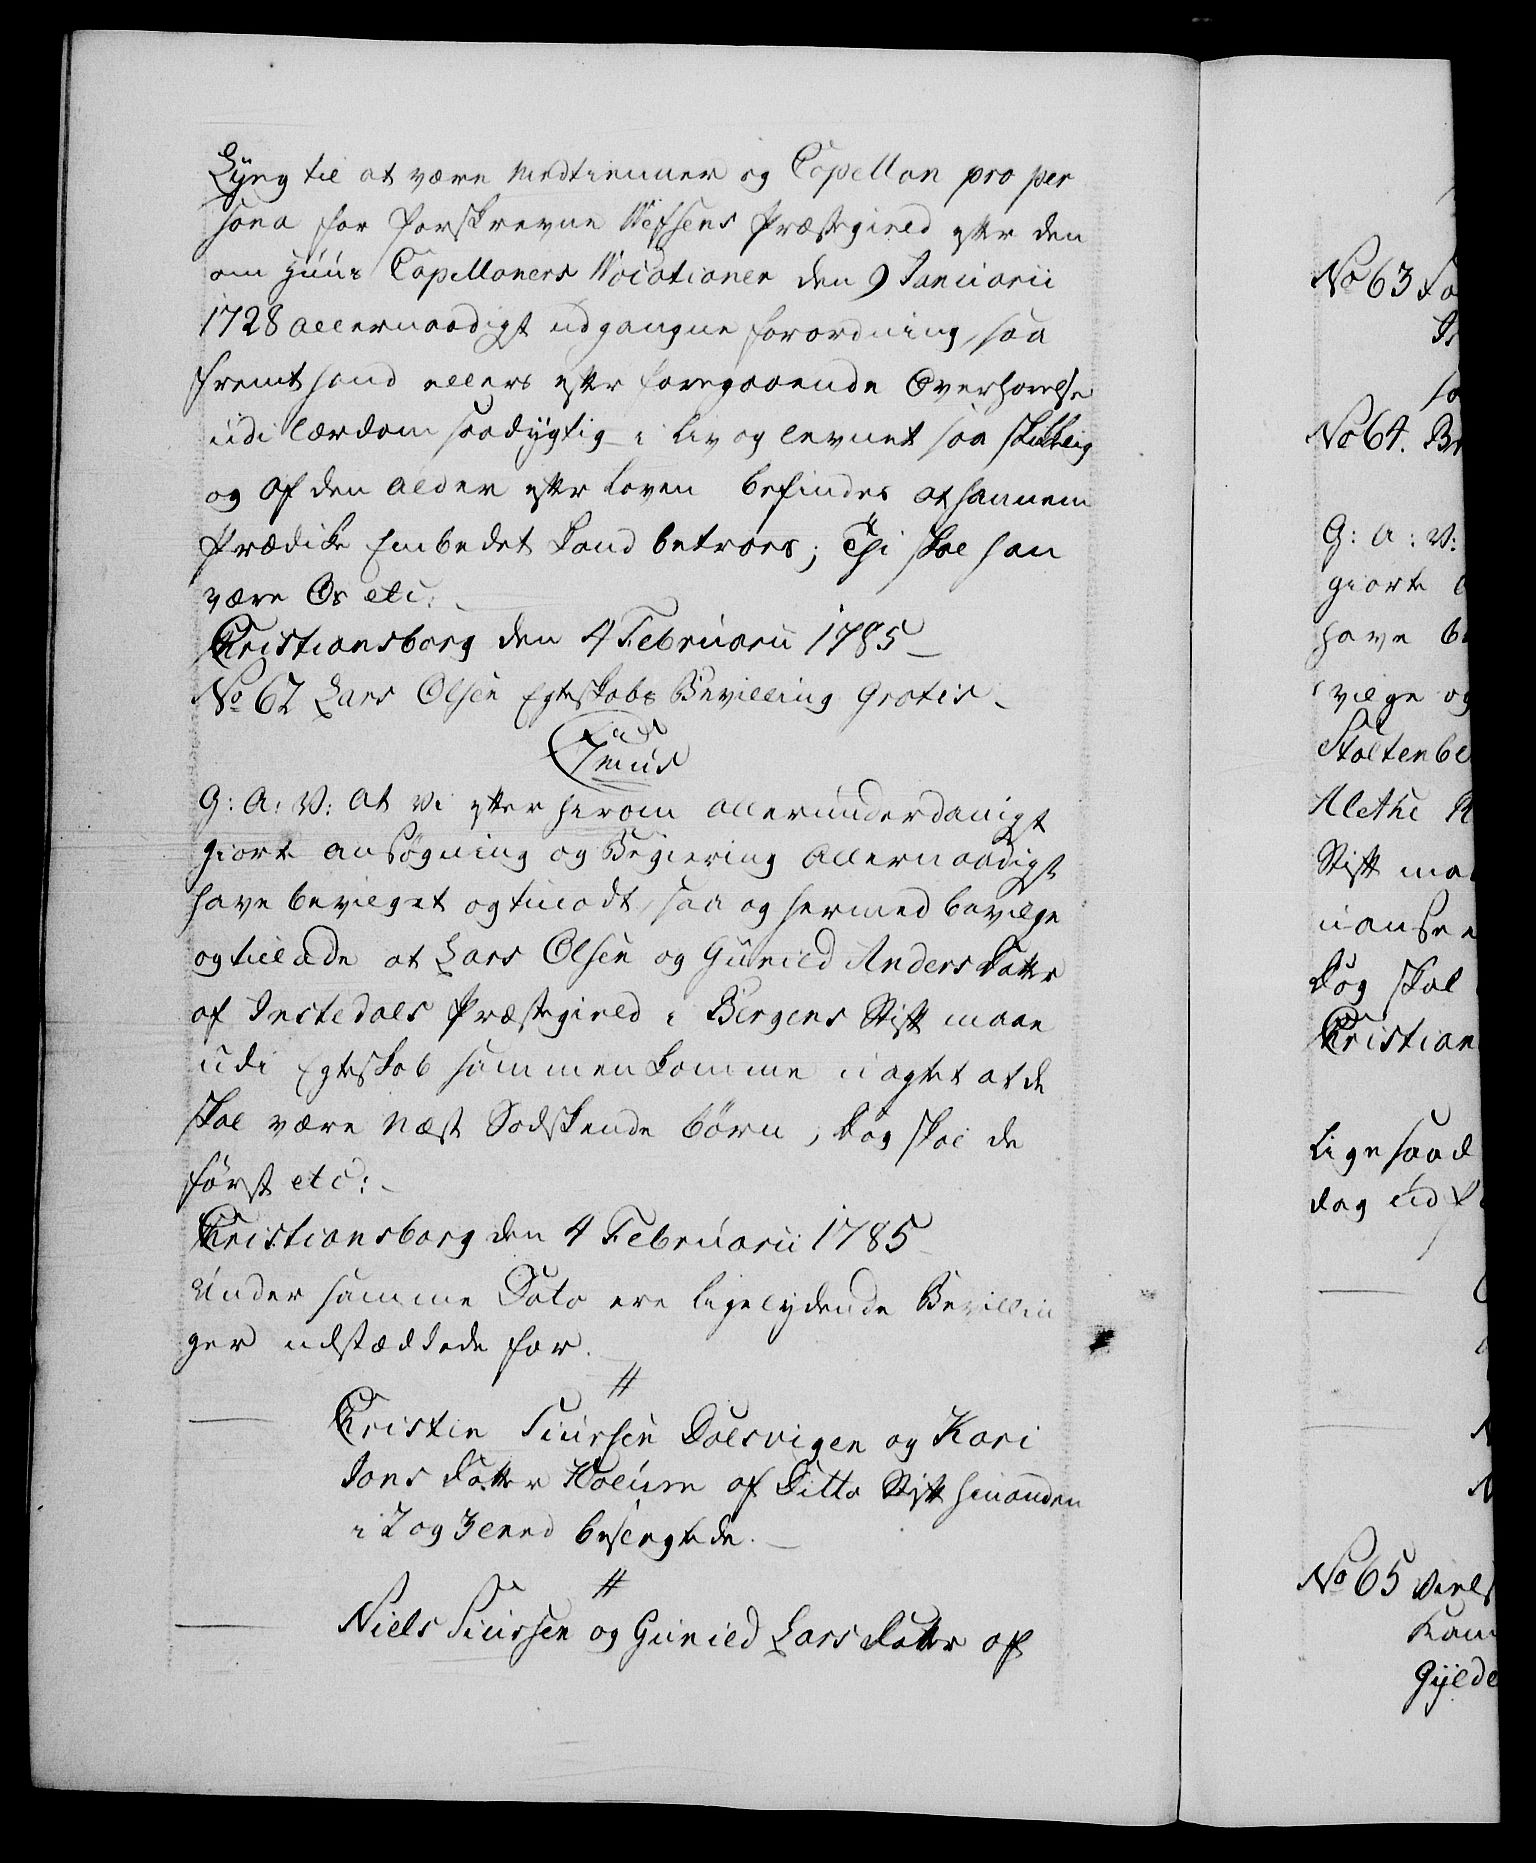 Lÿng til at være Medtienner og Capellan pro per
sona for forskrevne Wefsens Præstegield efter den
om Huus Capellaners Vocationer den 9 Januarii
1728 allernaadigst udgangne forordning, saa
fremt hand ellers efter foregaaende Overhørelse
udi lærdom saa dygtig i Liv og levnet saa skikkelig
og af den alder efter loven befindes at hannem
Prædike Embedet kand betroes; Thi skal han
være Os etc:
Christiansborg den 4 Februarii 1785
No 62 Lars Olsen Egteskabs Bevilling Gratis
G: A: V: at vi efter herom allerunderdanigst
giorte ansøgning og Begiering allernaadigst
have bevilget og tiladt, saa og hermed bevilge
og tillade at Lars Olsen og Gunild Anders Datter
af Justedals Præstegield i Bergens Stift maae
udi Egteskab sammenkomme uagtet at de
skal være Næst Sødskende børn, dog skal de
først etc:
Christiansborg den 4 Februarii 1785
Under samme Dato ere ligelydende Bevillin
ger udstædede for
//
Cristen Siursen Dalsvigen og Kari
Jons Datter Kalum af Ditto Stift hinanden
i 2 og 3 leed beslegtede.
//
Niels Siursen og Gunild Lars Datter af
No 63
No 64.
G: A: V:
giorte
have
vilge og
Stoltenbe
Alethe
Stift maa
uanseet
dog skal
Christian
ligesaad
dag ud
No 65
Gylde